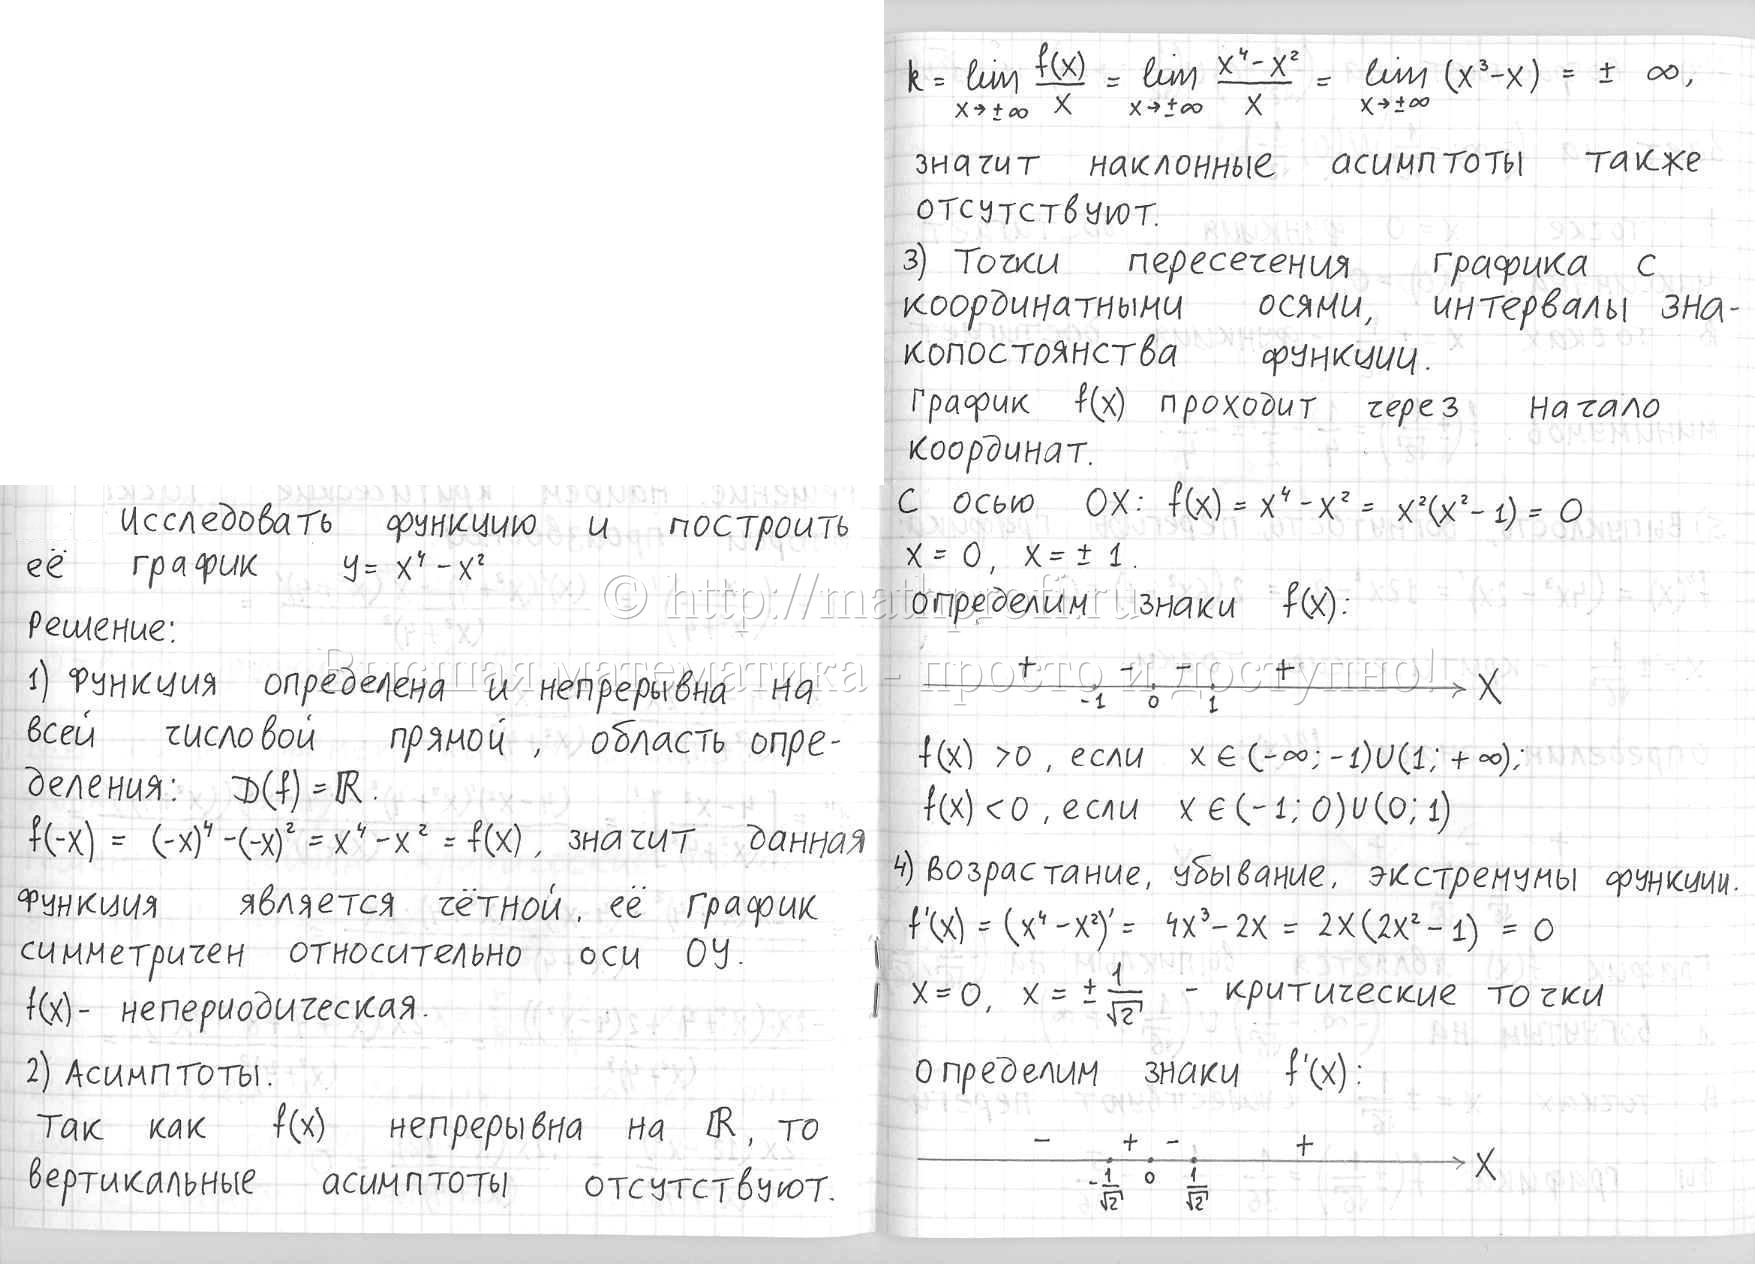 Исследовать функцию и построить
её график y = x⁴ - x²
Решение:
1) Функция определена и непрерывна на
всей числовой прямой, область опре-
деления: D(f) = ℝ.
f(-x) = (-x)⁴ - (-x)² = x⁴ - x² = f(x), значит данная
функция является чётной, её график
симметричен относительно оси OY.
f(x) - непериодическая.
2) Асимптоты.
Так как f(x) непрерывна на ℝ, то
вертикальные асимптоты отсутствуют.
k = lim f(x)/x = lim (x⁴ - x²)/x = lim (x³ - x) = ± ∞,
x→±∞ x→±∞ x→±∞
значит наклонные асимптоты также
отсутствуют.
3) Точки пересечения графика с
координатными осями, интервалы зна-
копостоянства функции.
График f(x) проходит через начало
координат.
С осью OX: f(x) = x⁴ - x² = x²(x² - 1) = 0
x = 0, x = ± 1.
© http://mathprofi.ru
Определим знаки f(x):
Высшая математика - просто и доступно!
+ - - +
-1 0 1 X
f(x) > 0, если x ∈ (-∞; -1) U (1; +∞);
f(x) < 0, если x ∈ (-1; 0) U (0; 1)
4) Возрастание, убывание, экстремумы функции.
f'(x) = (x⁴ - x²)' = 4x³ - 2x = 2x(2x² - 1) = 0
x = 0, x = ± 1/√2 - критические точки
Определим знаки f'(x):
- + - +
-1/√2 0 1/√2 X